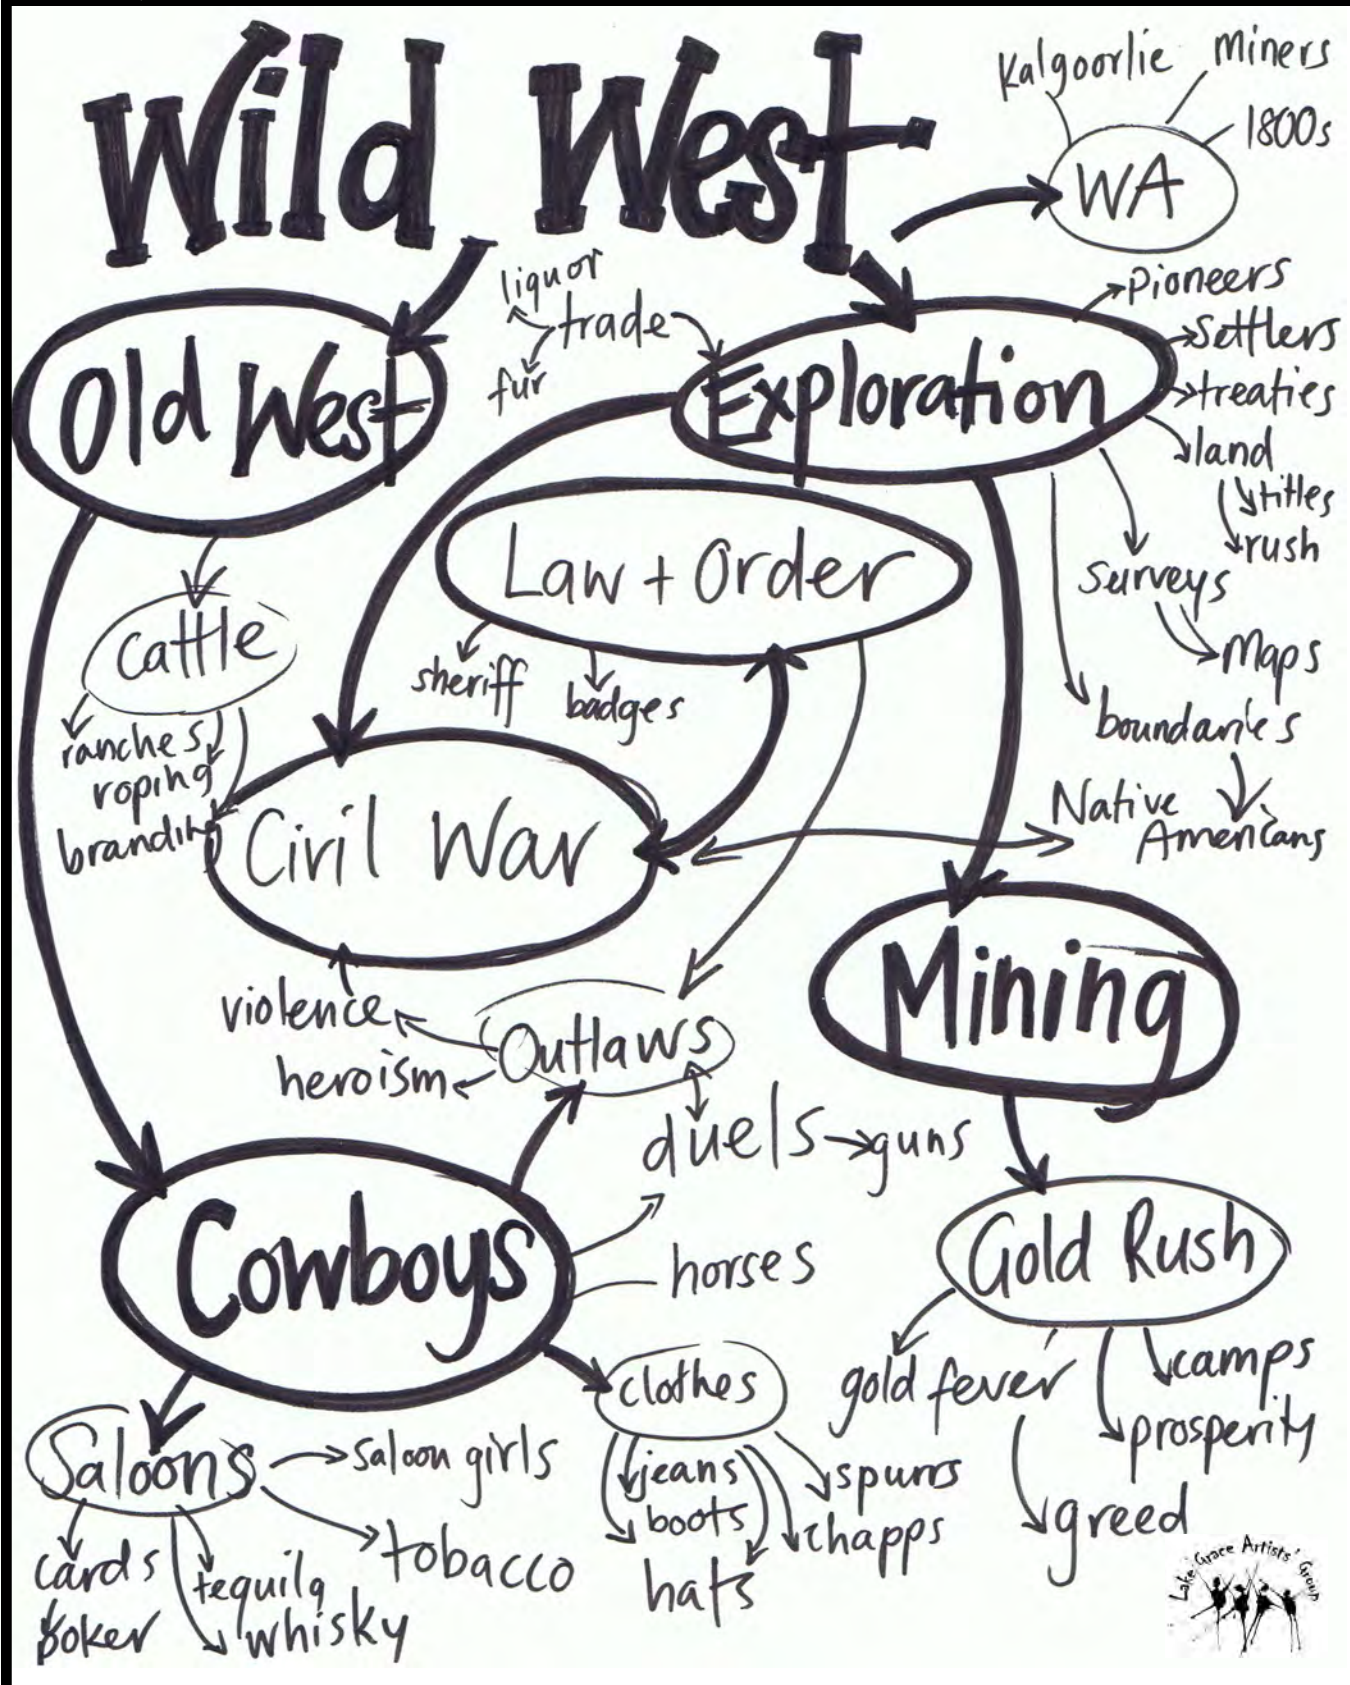 Wild West
Kalgoorlie
Miners
1800s
WA
Old West
liquor
trade
fur
Exploration
pioneers
settlers
treaties
land
titles
rush
surveys
Maps
boundaries
Native
Americans
Law + Order
sheriff
badges
cattle
ranches
roping
branding
Civil War
violence
heroism
Outlaws
duels
guns
Mining
Cowboys
horses
Gold Rush
gold fever
camps
prosperity
greed
clothes
jeans
boots
hats
spurrs
chapps
Saloons
saloon girls
tobacco
cards
poker
tequila
whisky
Lake Grace Artists' Group